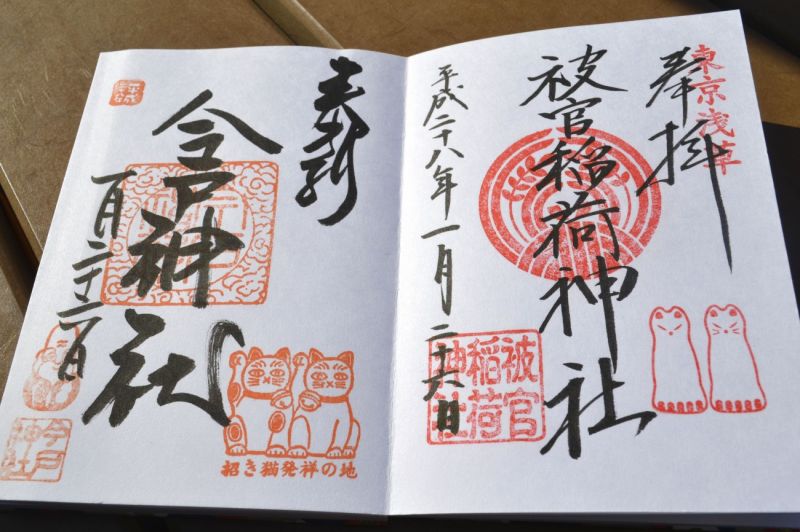 奉拝
東京浅草
被官稲荷神社
平成二十八年一月二十六日
被官
稲荷
神社
奉拝
今戸神社
一月二十六日
平成
招き猫発祥の地
今戸
神社